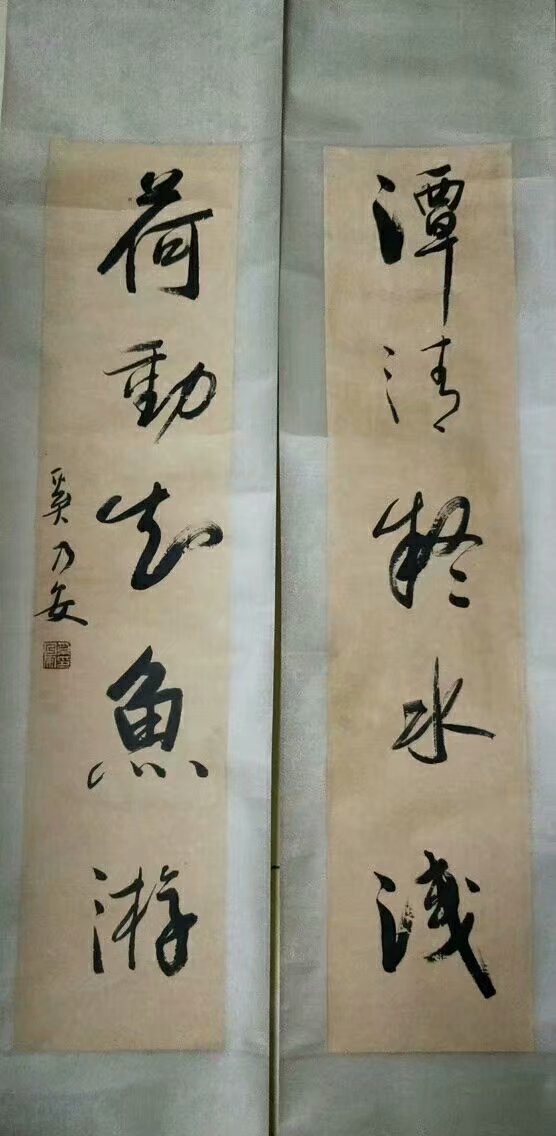 潭清疑水淺
荷動知魚游
奚乃安